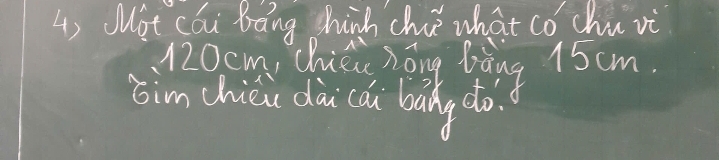 4) Một cái bảng hình chữ nhật có chu vi
120cm, chiều rộng bằng 15cm.
Tìm chiều dài cái bảng đó.